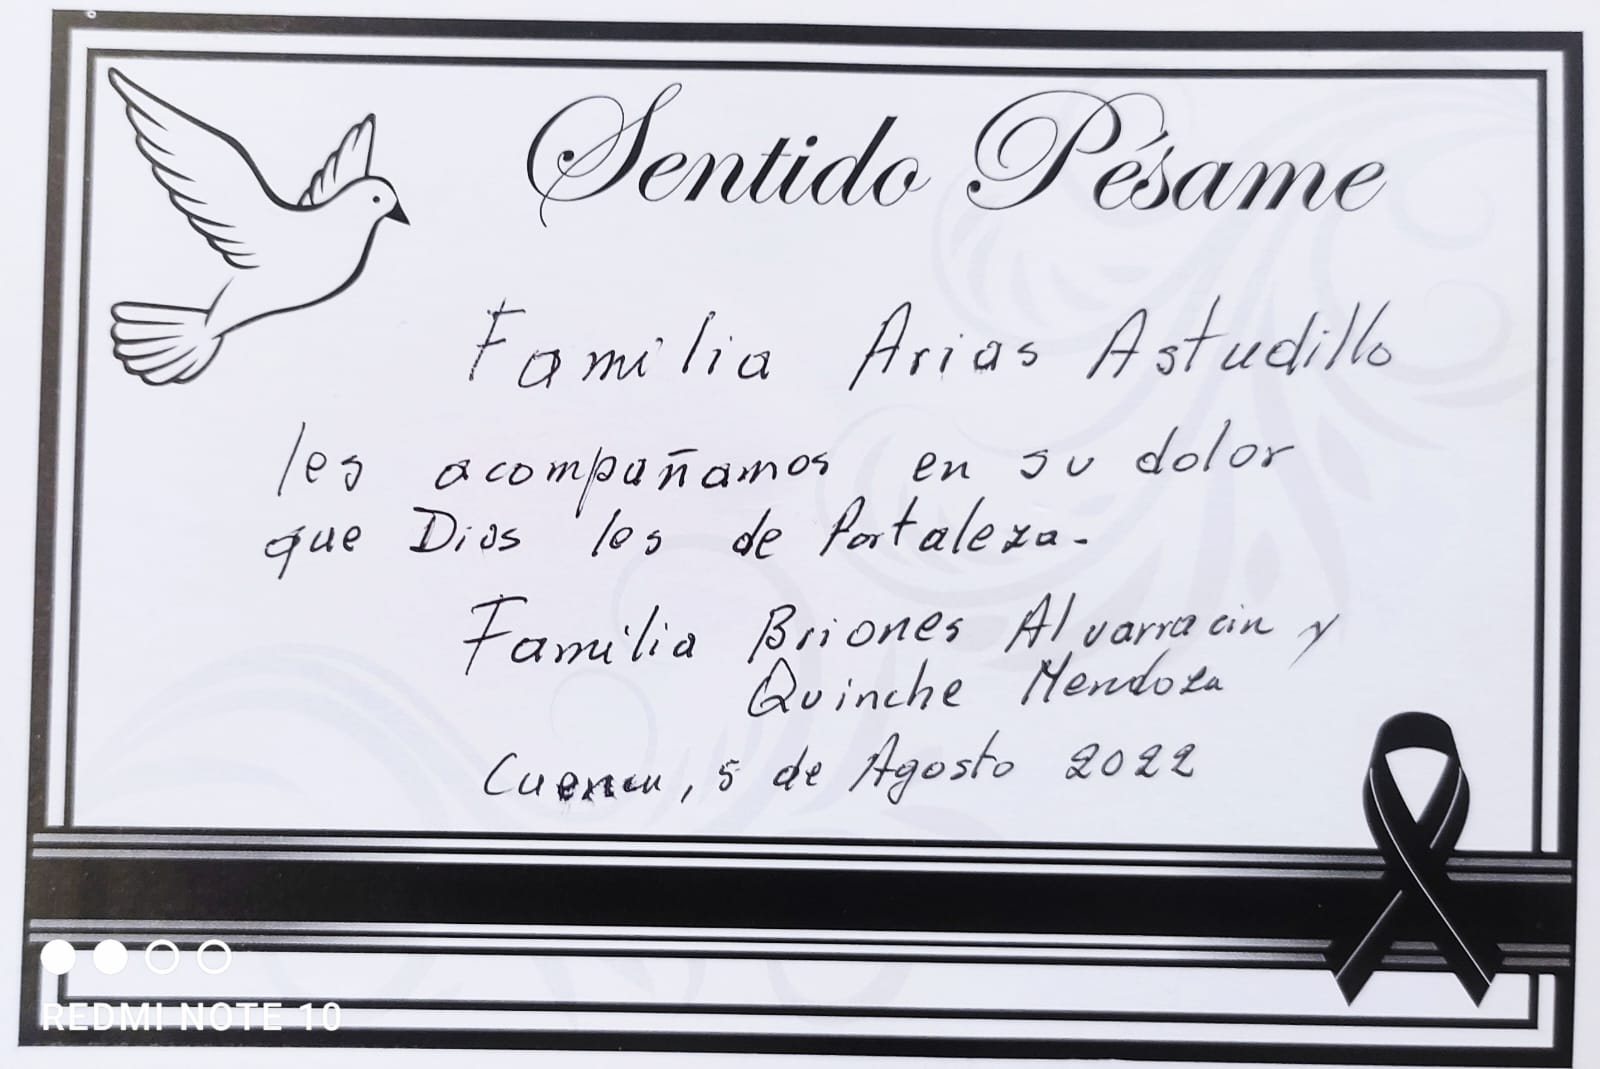 Sentido Pésame
Familia Arias Astudillo
les acompañamos en su dolor
que Dios les de fortaleza.
Familia Briones Alvarracin y
Quinche Mendoza
Cuenca, 5 de Agosto 2022
REDMI NOTE 10